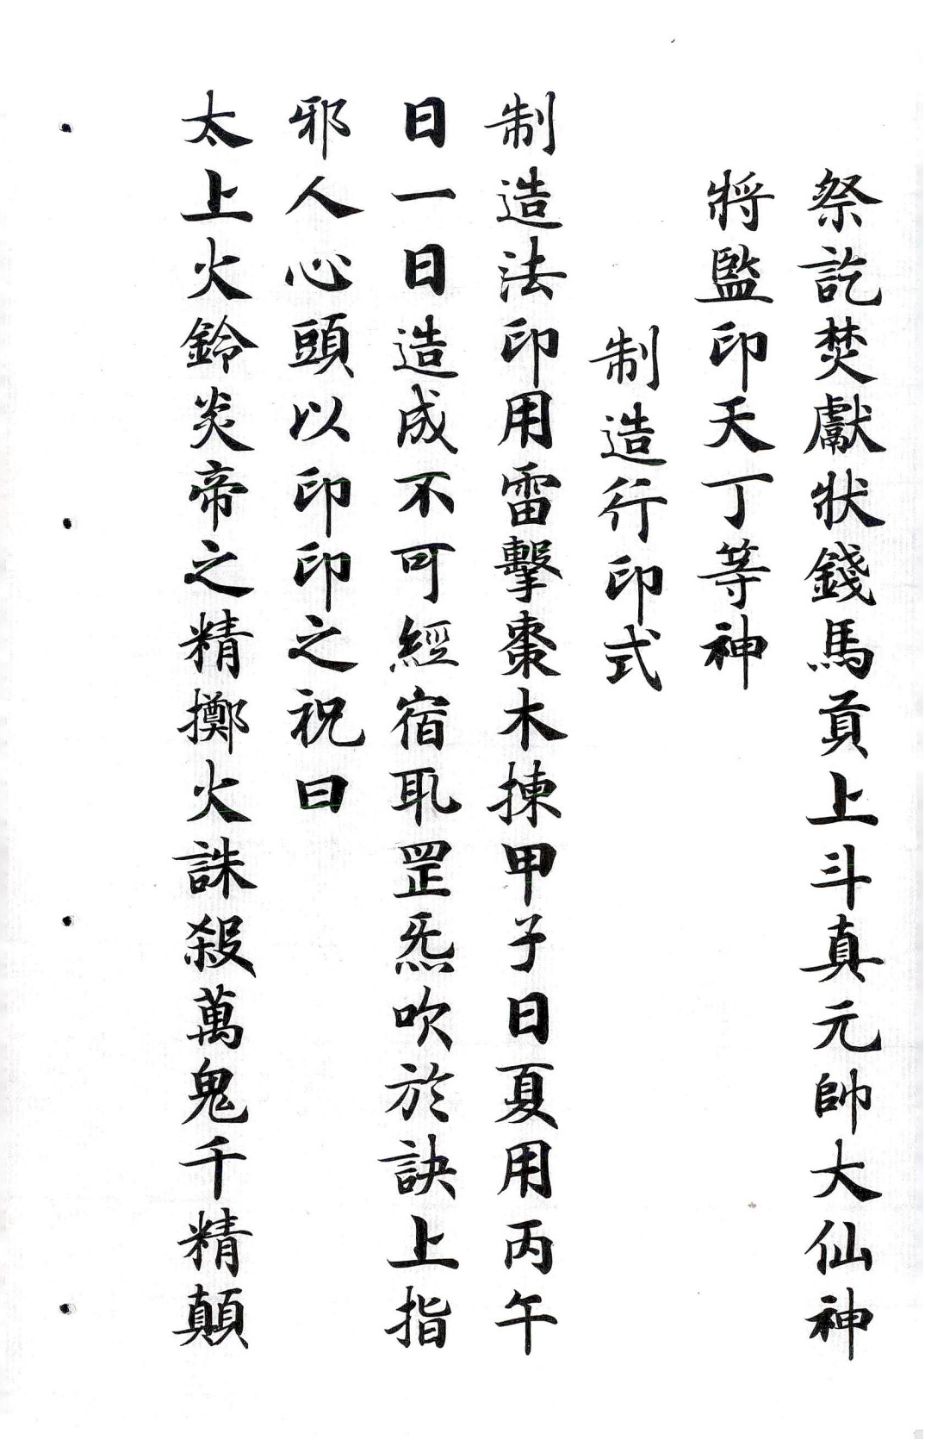 祭訖焚獻狀錢馬貢上斗真元帥大仙神
將監印天丁等神
制造行印式
制造法印用雷擊棗木揀甲子日夏用丙午
日一日造成不可經宿耴罡炁吹於訣上指
邪人心頭以印印之祝曰
太上火鈴炎帝之精擲火誅殺萬鬼千精顛